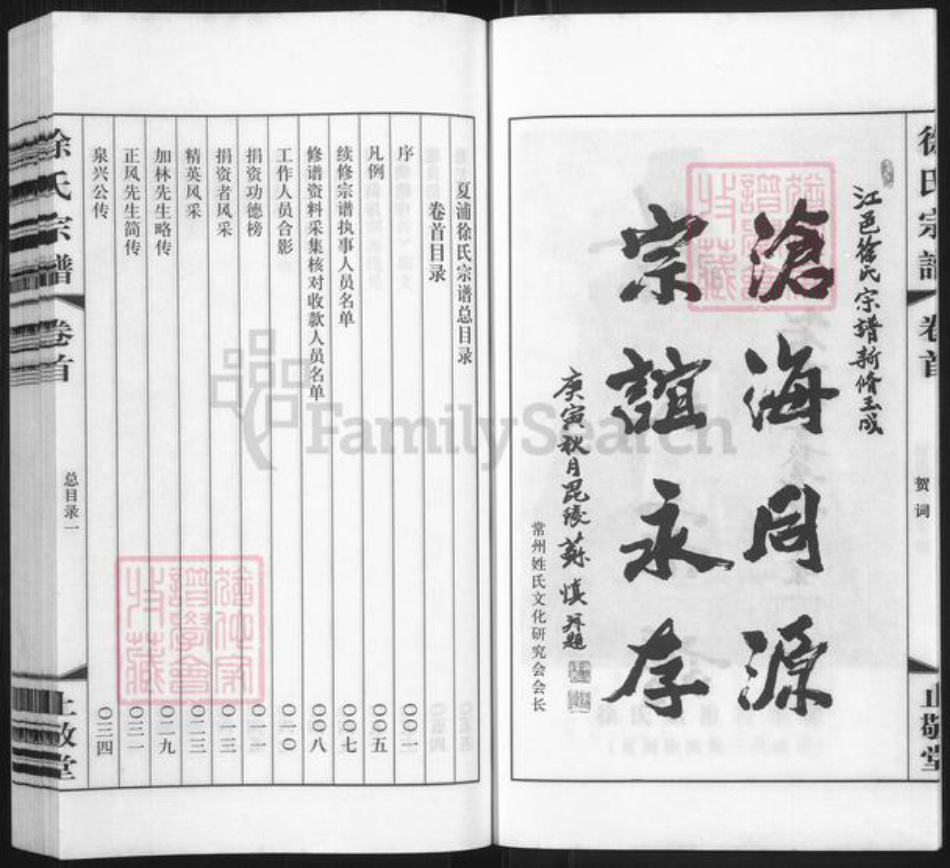 徐氏宗谱
卷首
贺词
止敬堂
江邑徐氏宗谱新修玉成
沧海同源
宗谊永存
庚寅秋月毘陵苏慎拜题
常州姓氏文化研究会会长
夏浦徐氏宗谱总目录
卷首目录
序 〇〇一
凡例 〇〇五
续修宗谱执事人员名单 〇〇七
修谱资料采集核对收款人员名单 〇〇八
工作人员合影 〇一〇
捐资功德榜 〇一一
捐资者风采 〇一三
精英风采 〇二三
加林先生略传 〇二九
正风先生简传 〇三一
泉兴公传 〇三四
徐氏宗谱
卷首
总目录一
止敬堂
FamilySearch